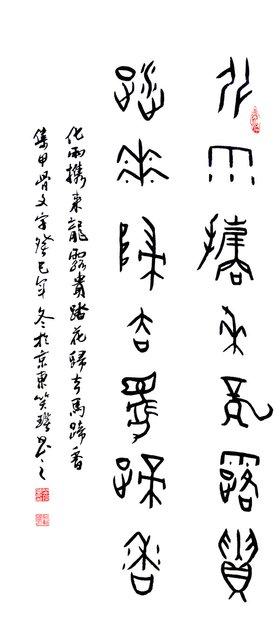 化雨攜來龍露貴
踏花歸去馬蹄香
化雨携來龍露貴踏花歸去馬蹄香
集甲骨文字癸巳年冬於京東笑